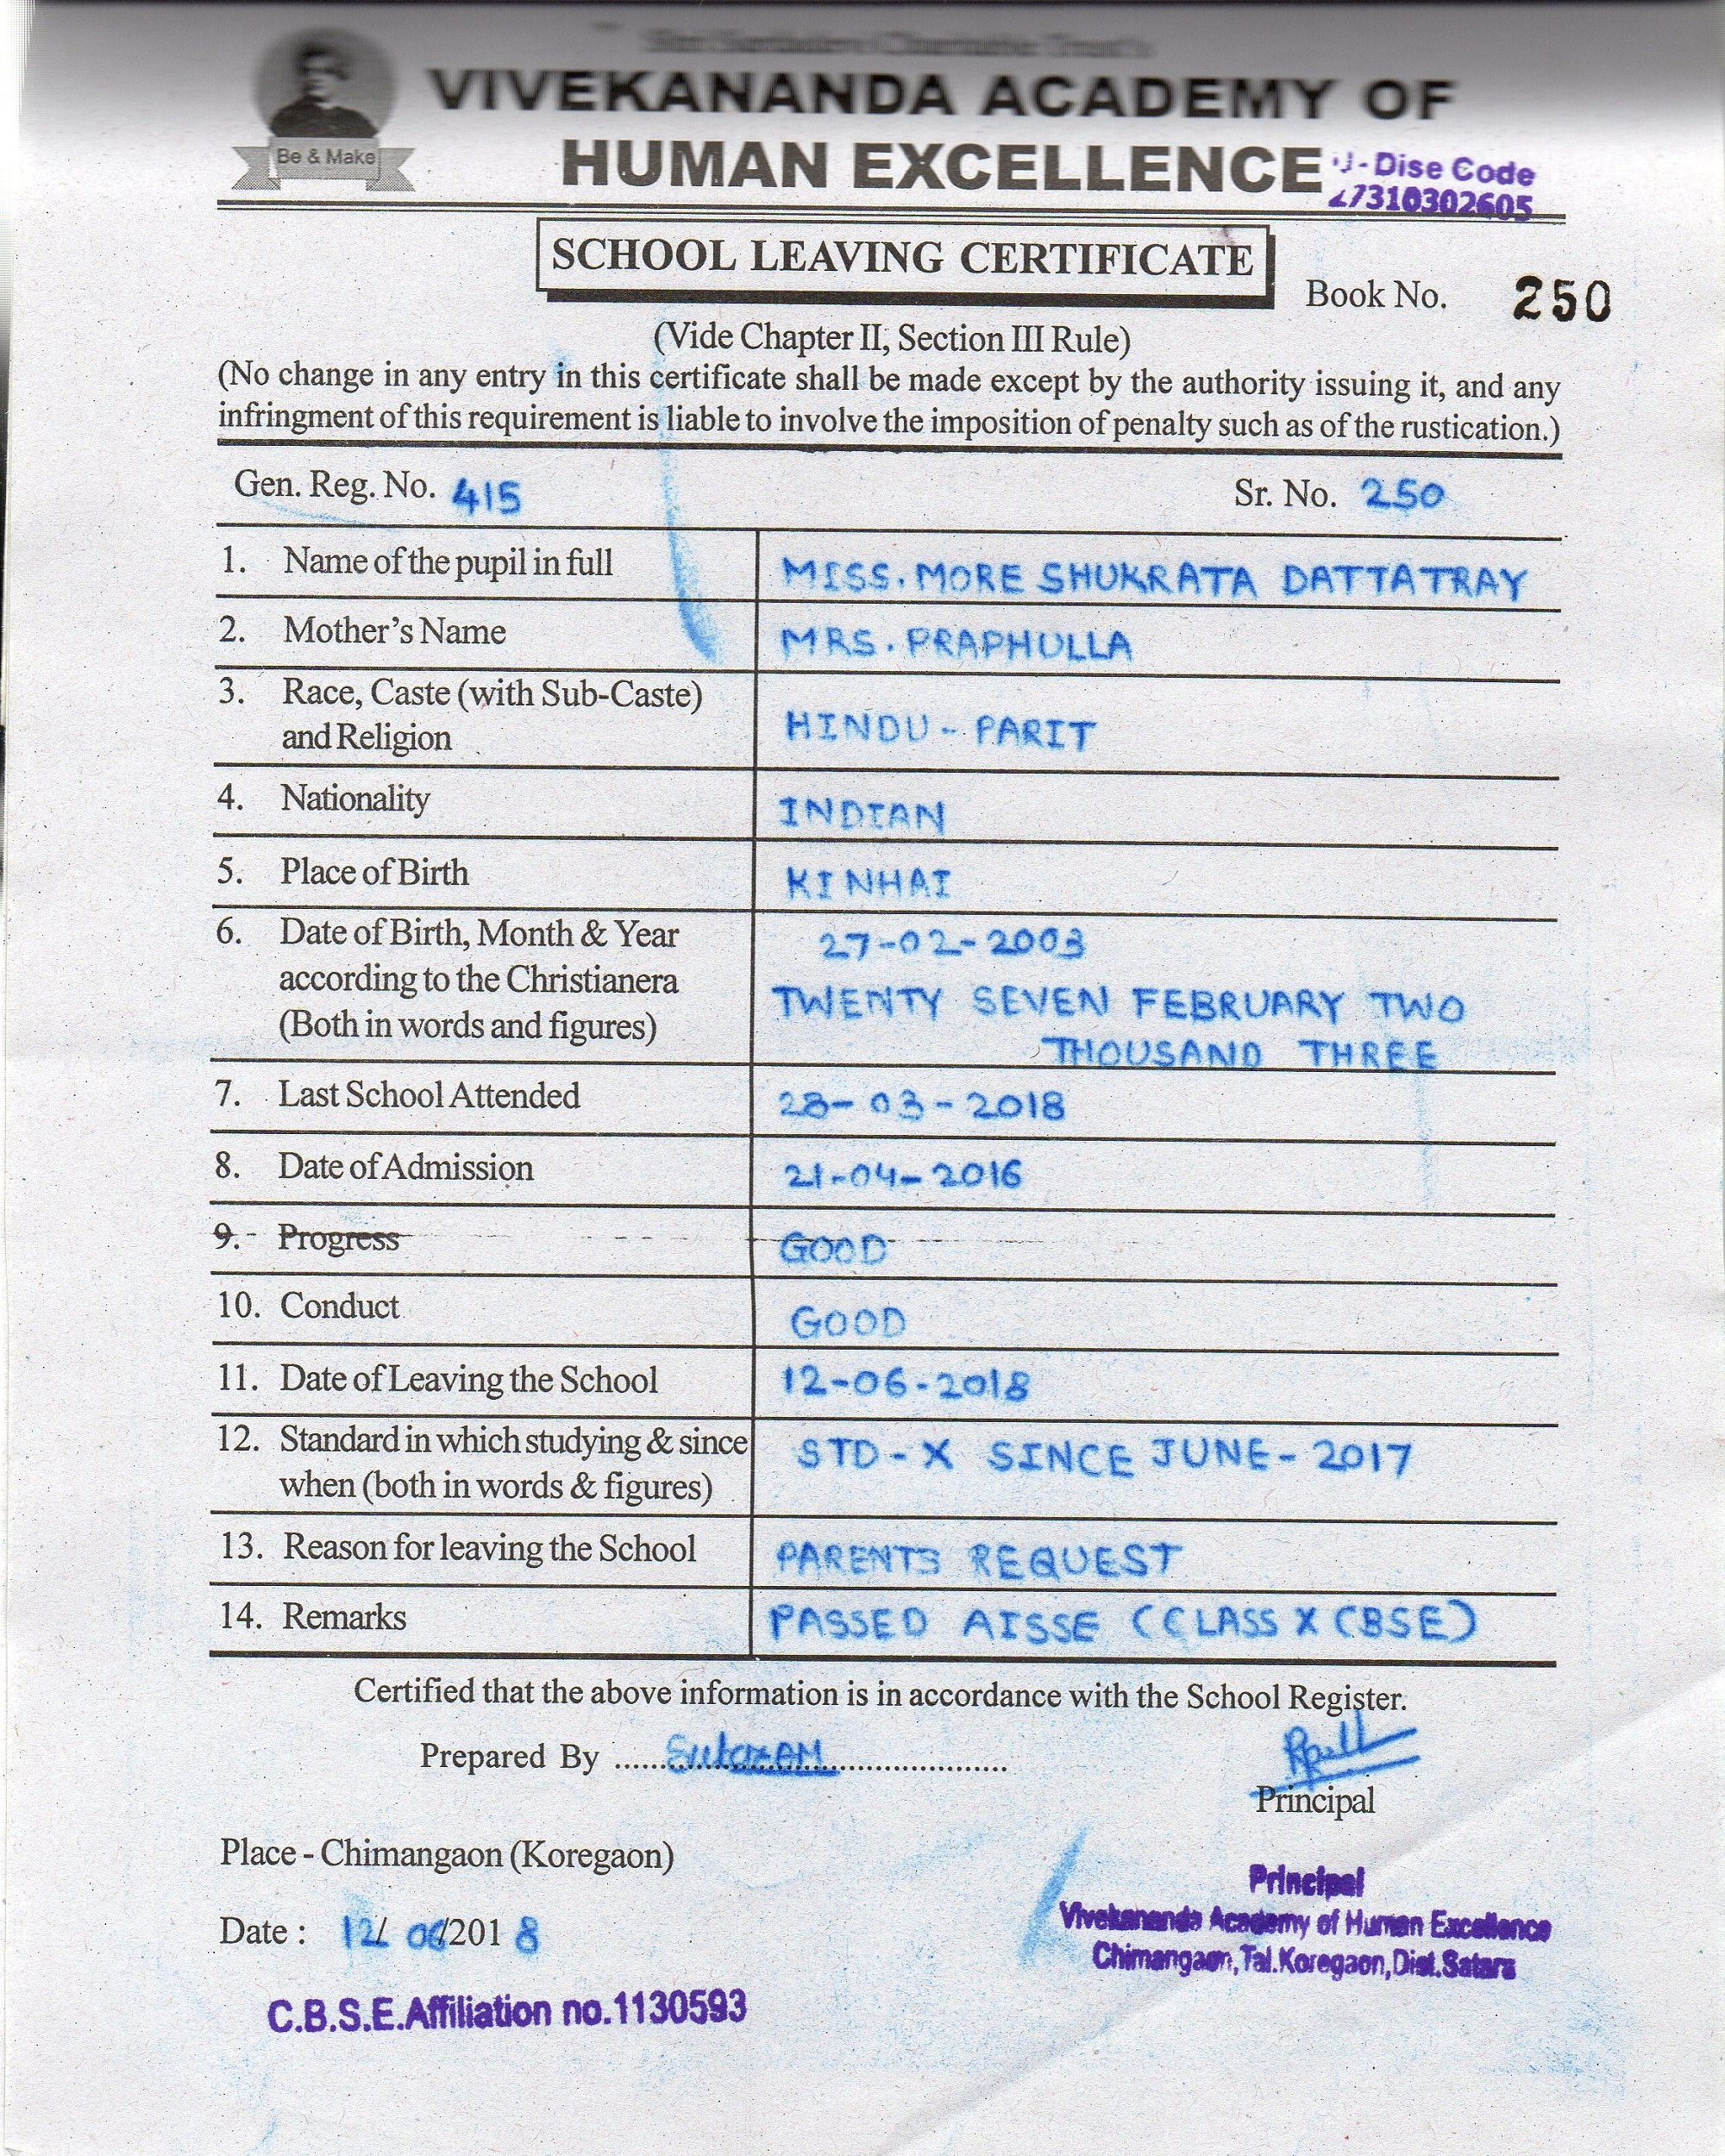 Be & Make
VIVEKANANDA ACADEMY OF
HUMAN EXCELLENCE
U-Dise Code
27310302605
SCHOOL LEAVING CERTIFICATE
Book No. 250
(Vide Chapter II, Section III Rule)
(No change in any entry in this certificate shall be made except by the authority issuing it, and any
infringment of this requirement is liable to involve the imposition of penalty such as of the rustication.)
Gen. Reg. No. 415 Sr. No. 250
1. Name of the pupil in full MISS. MORE SHUKRATA DATTATRAY
2. Mother's Name MRS. PRAPHULLA
3. Race, Caste (with Sub-Caste)
and Religion HINDU - PARIT
4. Nationality INDIAN
5. Place of Birth KINHAI
6. Date of Birth, Month & Year 27-02-2003
according to the Christianera TWENTY SEVEN FEBRUARY TWO
(Both in words and figures) THOUSAND THREE
7. Last School Attended 28-03-2018
8. Date of Admission 21-04-2016
9. Progress GOOD
10. Conduct GOOD
11. Date of Leaving the School 12-06-2018
12. Standard in which studying & since STD - X SINCE JUNE - 2017
when (both in words & figures)
13. Reason for leaving the School PARENTS REQUEST
14. Remarks PASSED AISSE (CLASS X CBSE)
Certified that the above information is in accordance with the School Register.
Prepared By
Principal
Place - Chimangaon (Koregaon)
Principal
Vivekananda Academy of Human Excellence
Chimangaon, Tal. Koregaon, Dist. Satara
Date : 12/ 06/2018
C.B.S.E. Affiliation no. 1130593